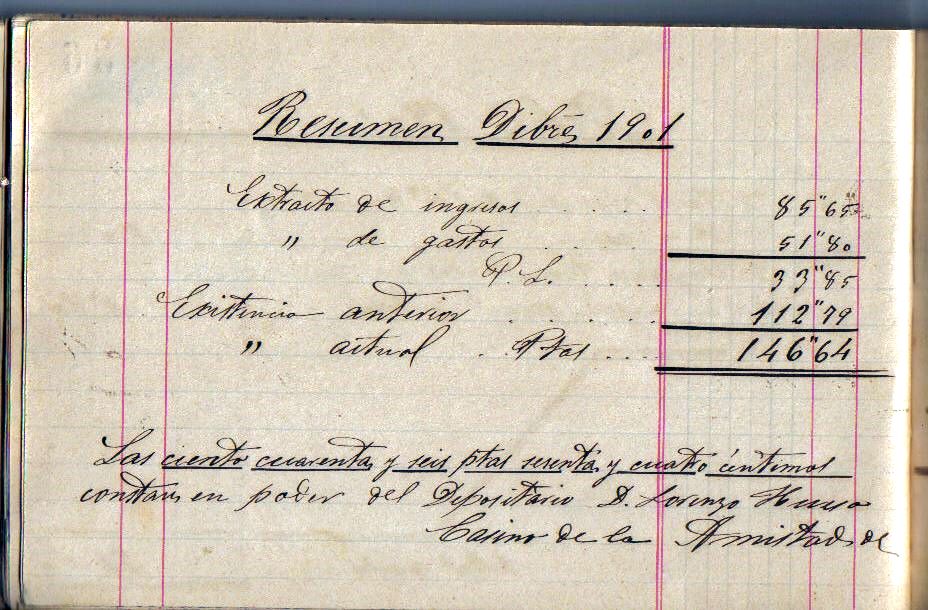 Resumen Dibre 1901
Extracto de ingresos . . . . . 85"65
" de gastos . . . . 51"80
P. L. . . . . 33"85
Existencia anterior . . . . . . 112"79
" actual . Ptas . . . 146"64
Las ciento cuarenta y seis ptas sesenta y cuatro céntimos
constan en poder del Depositario D. Lorenzo
Casino de la Amistad de